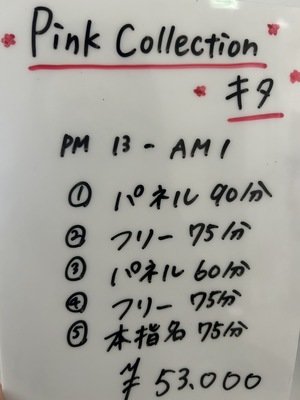 Pink Collection
キタ
PM 13 - AM1
① パネル 90分
② フリー 75分
③ パネル 60分
④ フリー 75分
⑤ 本指名 75分
¥ 53.000